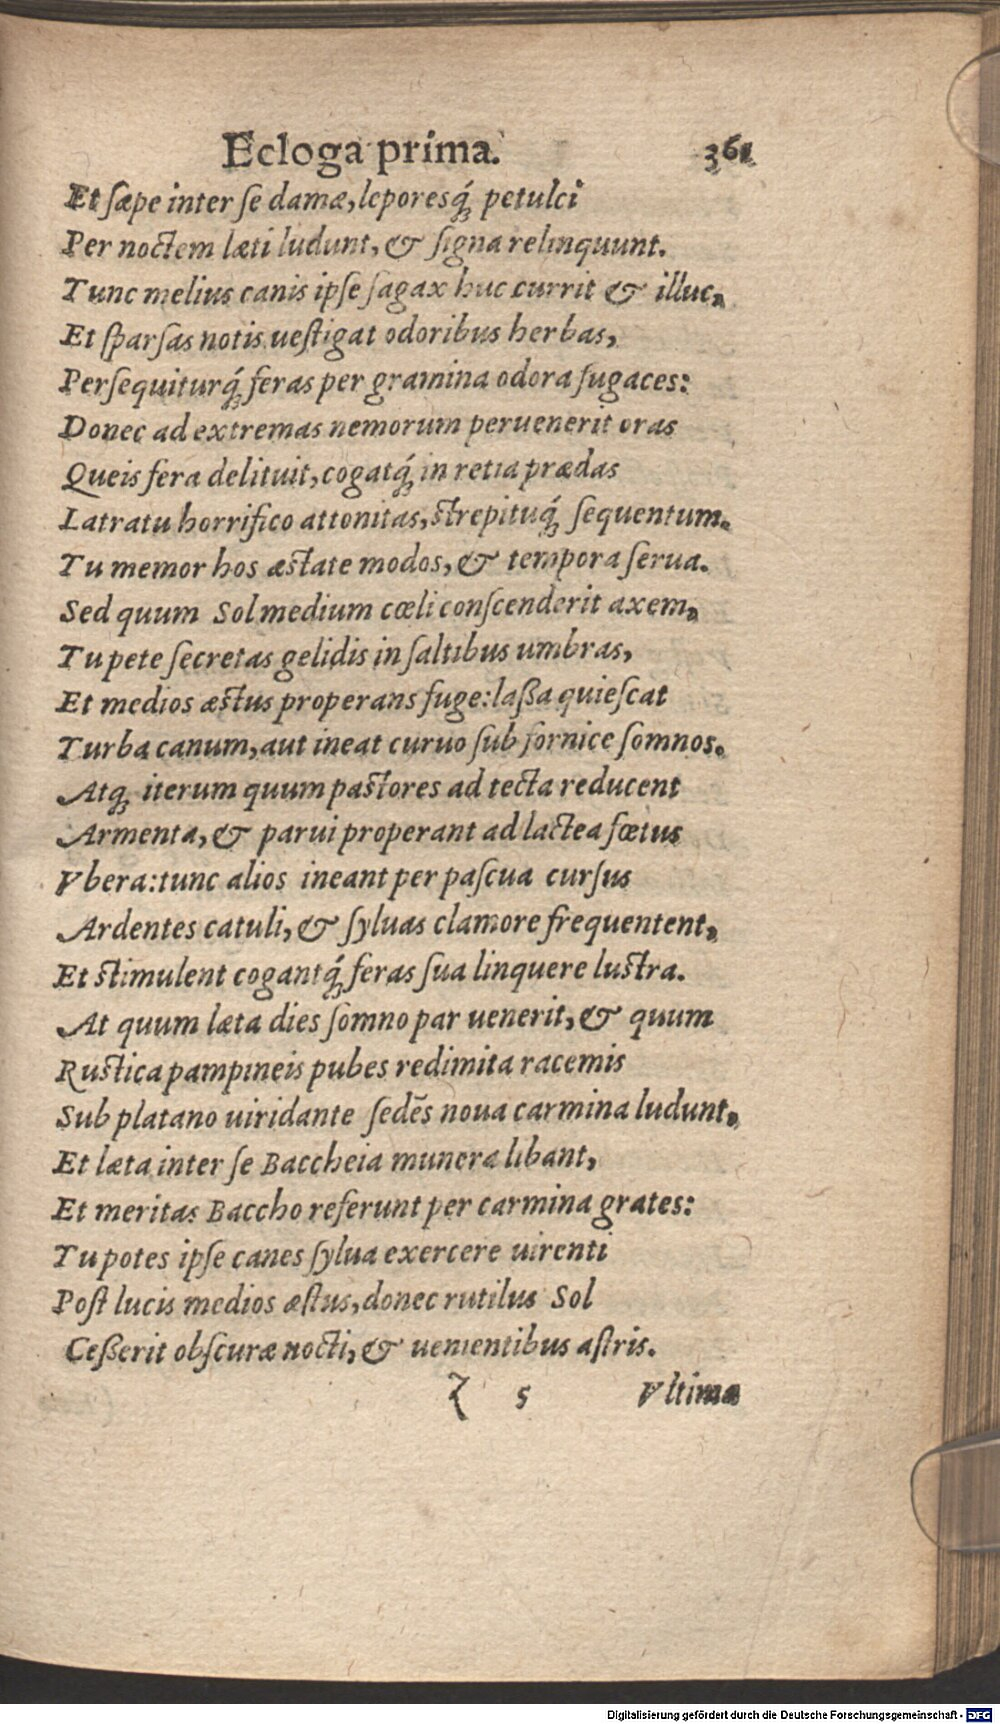 Ecloga prima. 361
Et sæpe inter se damæ, leporesq́; petulci
Per noctem læti ludunt, & signa relinquunt.
Tunc melius canis ipse sagax huc currit & illuc,
Et sparsas notis uestigat odoribus herbas,
Persequiturq́; feras per gramina odora fugaces:
Donec ad extremas nemorum peruenerit oras
Queis fera delituit, cogatq́; in retia prædas
Latratu horrifico attonitas, strepituq́; sequentum.
Tu memor hos æstate modos, & tempora serua.
Sed quum Sol medium cœli conscenderit axem,
Tu pete secretas gelidis in saltibus umbras,
Et medios æstus properans fuge: laßa quiescat
Turba canum, aut ineat curuo sub fornice somnos.
Atq; iterum quum pastores ad tecta reducent
Armenta, & parui properant ad lactea fœtus
Vbera: tunc alios ineant per pascua cursus
Ardentes catuli, & syluas clamore frequentent,
Et stimulent cogantq́; feras sua linquere lustra.
At quum læta dies somno par uenerit, & quum
Rustica pampineis pubes redimita racemis
Sub platano uiridante sedẽs noua carmina ludunt,
Et læta inter se Baccheia munera libant,
Et meritas Baccho referunt per carmina grates:
Tu potes ipse canes sylua exercere uirenti
Post lucis medios æstus, donec rutilus Sol
Ceßerit obscuræ nocti, & uenientibus astris.
Z 5 Vltimæ
Digitalisierung gefördert durch die Deutsche Forschungsgemeinschaft - DFG